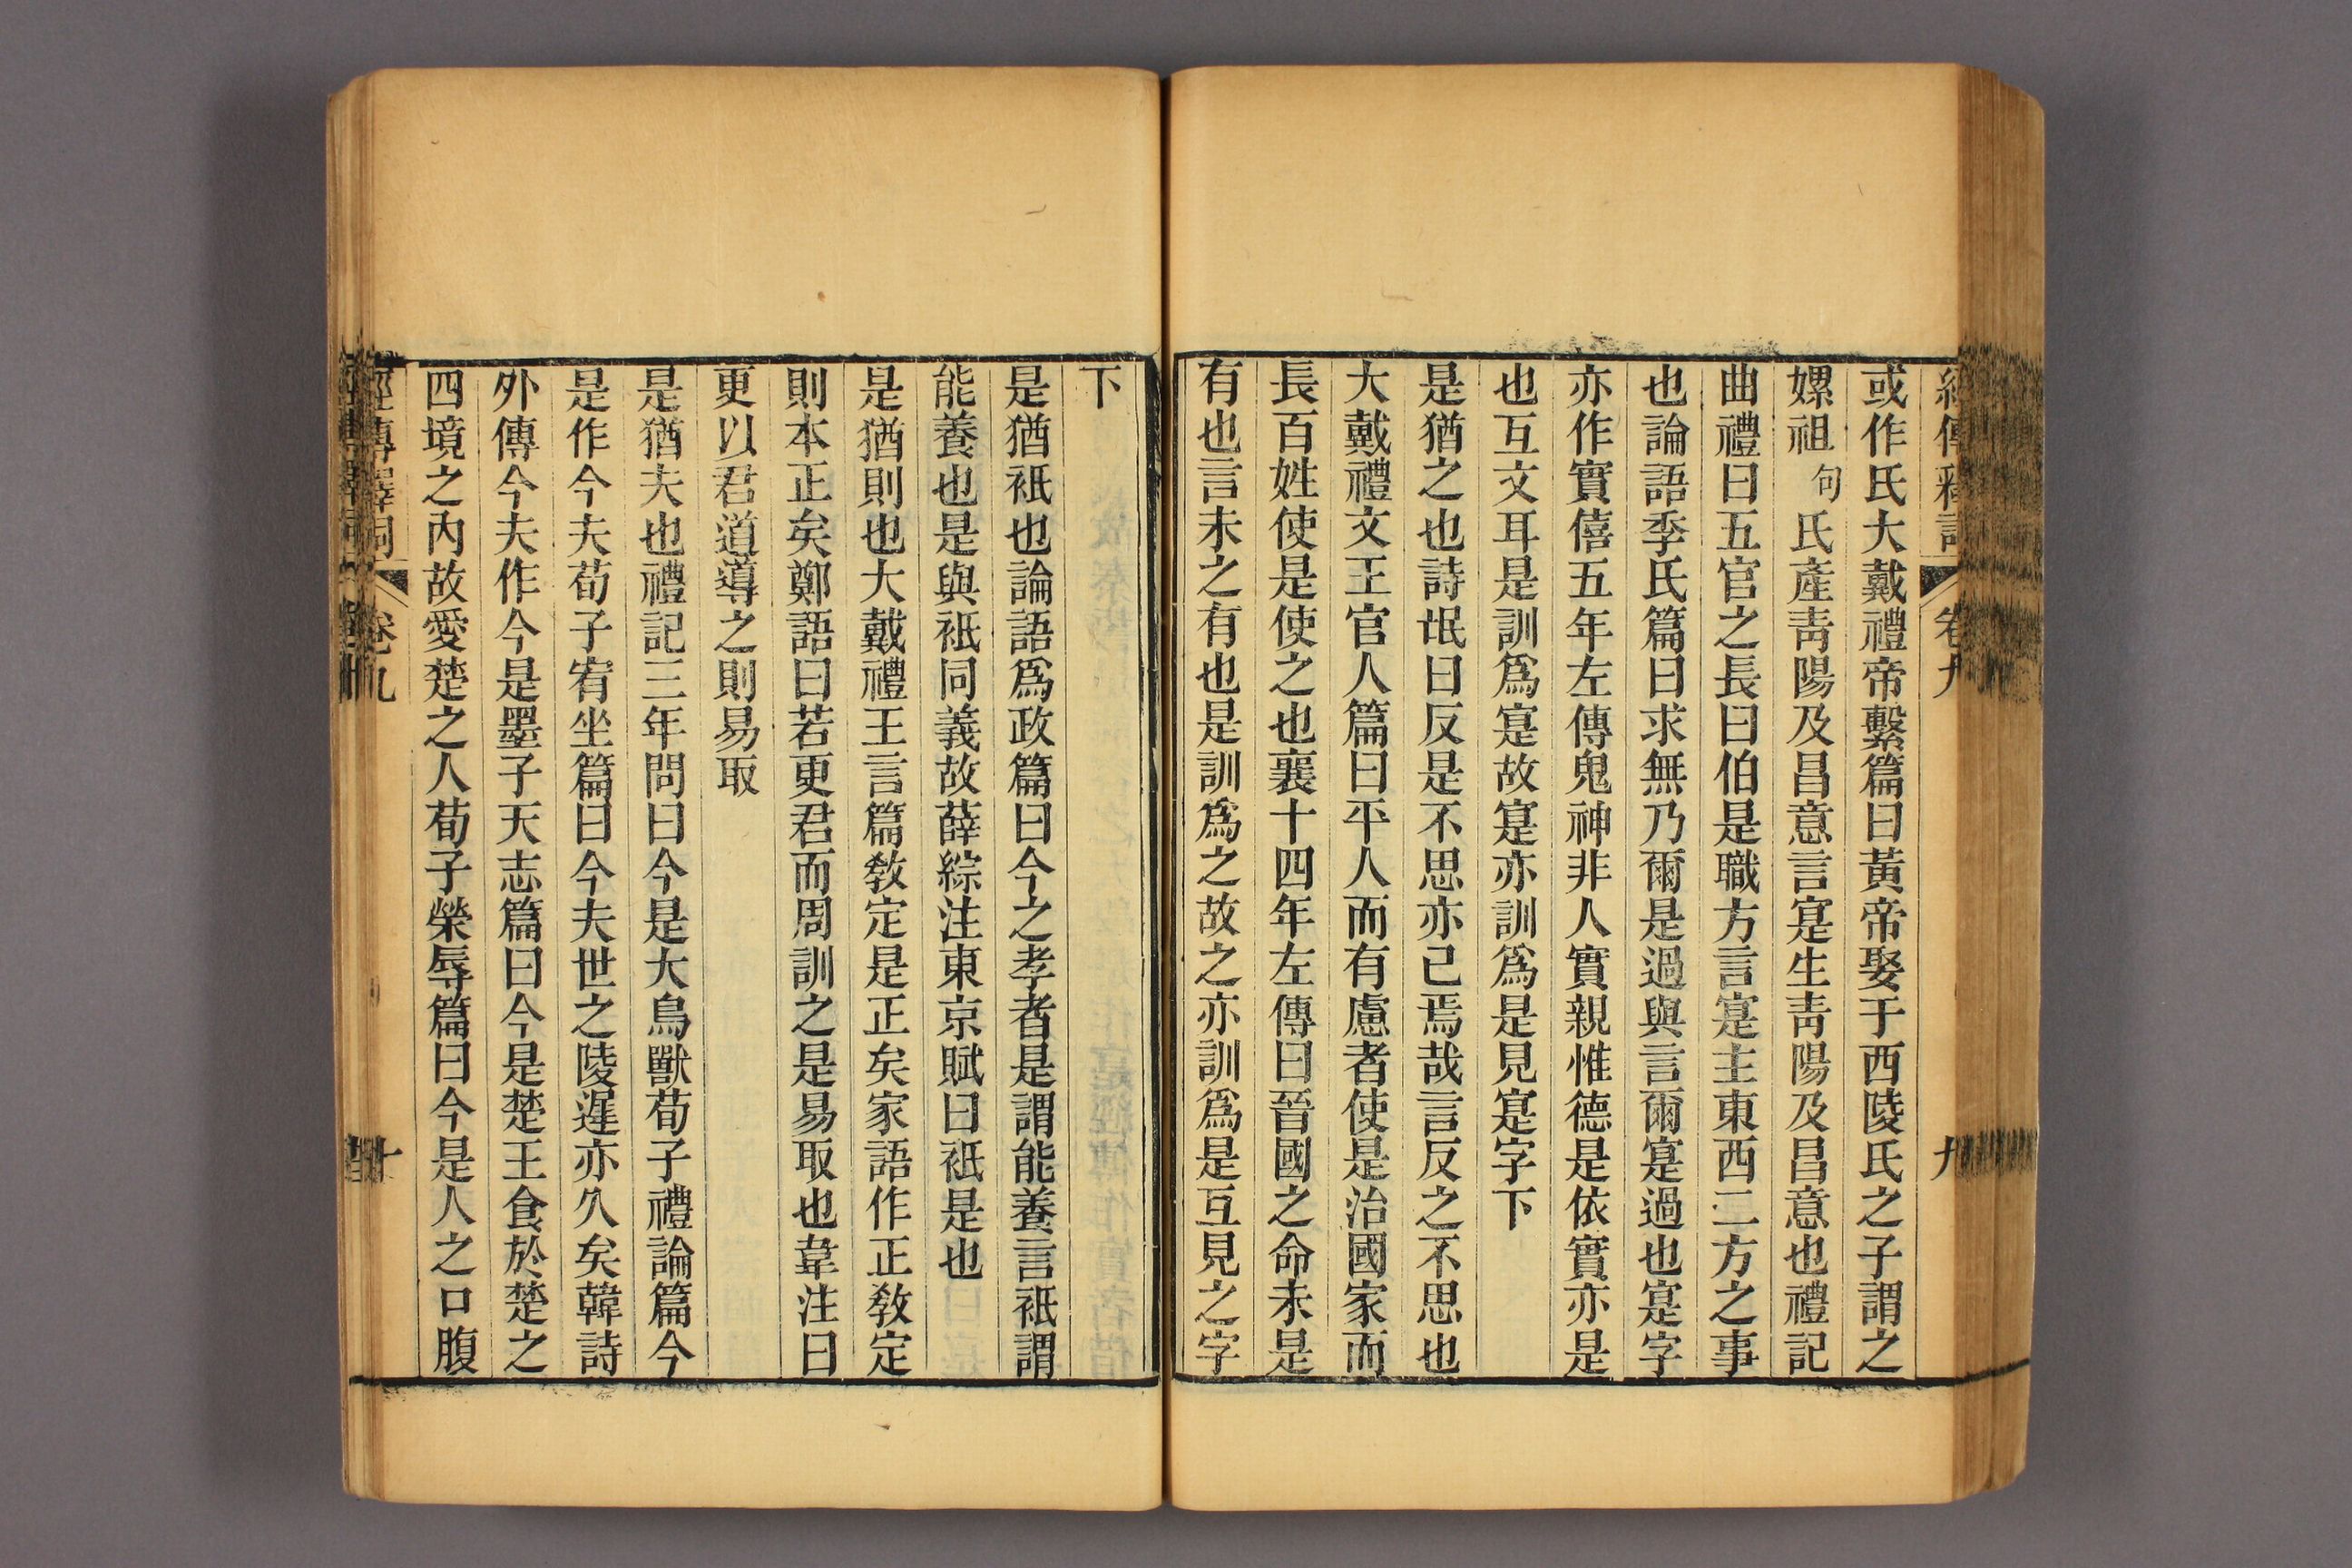 經傳釋詞 卷九 九
或作氏大戴禮帝繫篇曰黃帝娶于西陵氏之子謂之
嫘祖句氏產靑陽及昌意言寔生靑陽及昌意也禮記
曲禮曰五官之長曰伯是職方言寔主東西二方之事
也論語季氏篇曰求無乃爾是過與言爾寔過也寔字
亦作實僖五年左傳鬼神非人實親惟德是依實亦是
也互文耳是訓爲寔故寔亦訓爲是見寔字下
是猶之也詩氓曰反是不思亦已焉哉言反之不思也
大戴禮文王官人篇曰平人而有慮者使是治國家而
長百姓使是使之也襄十四年左傳曰晉國之命未是
有也言未之有也是訓爲之故之亦訓爲是互見之字
下
是猶祇也論語爲政篇曰今之孝者是謂能養言祇謂
能養也是與祇同義故薛綜注東京賦曰祇是也
是猶則也大戴禮王言篇敎定是正矣家語作正敎定
則本正矣鄭語曰若更君而周訓之是易取也韋注曰
更以君道導之則易取
是猶夫也禮記三年問曰今是大鳥獸荀子禮論篇今
是作今夫荀子宥坐篇曰今夫世之陵遲亦久矣韓詩
外傳今夫作今是墨子天志篇曰今是楚王食於楚之
四境之內故愛楚之人荀子榮辱篇曰今是人之口腹
經傳釋詞 卷九 十